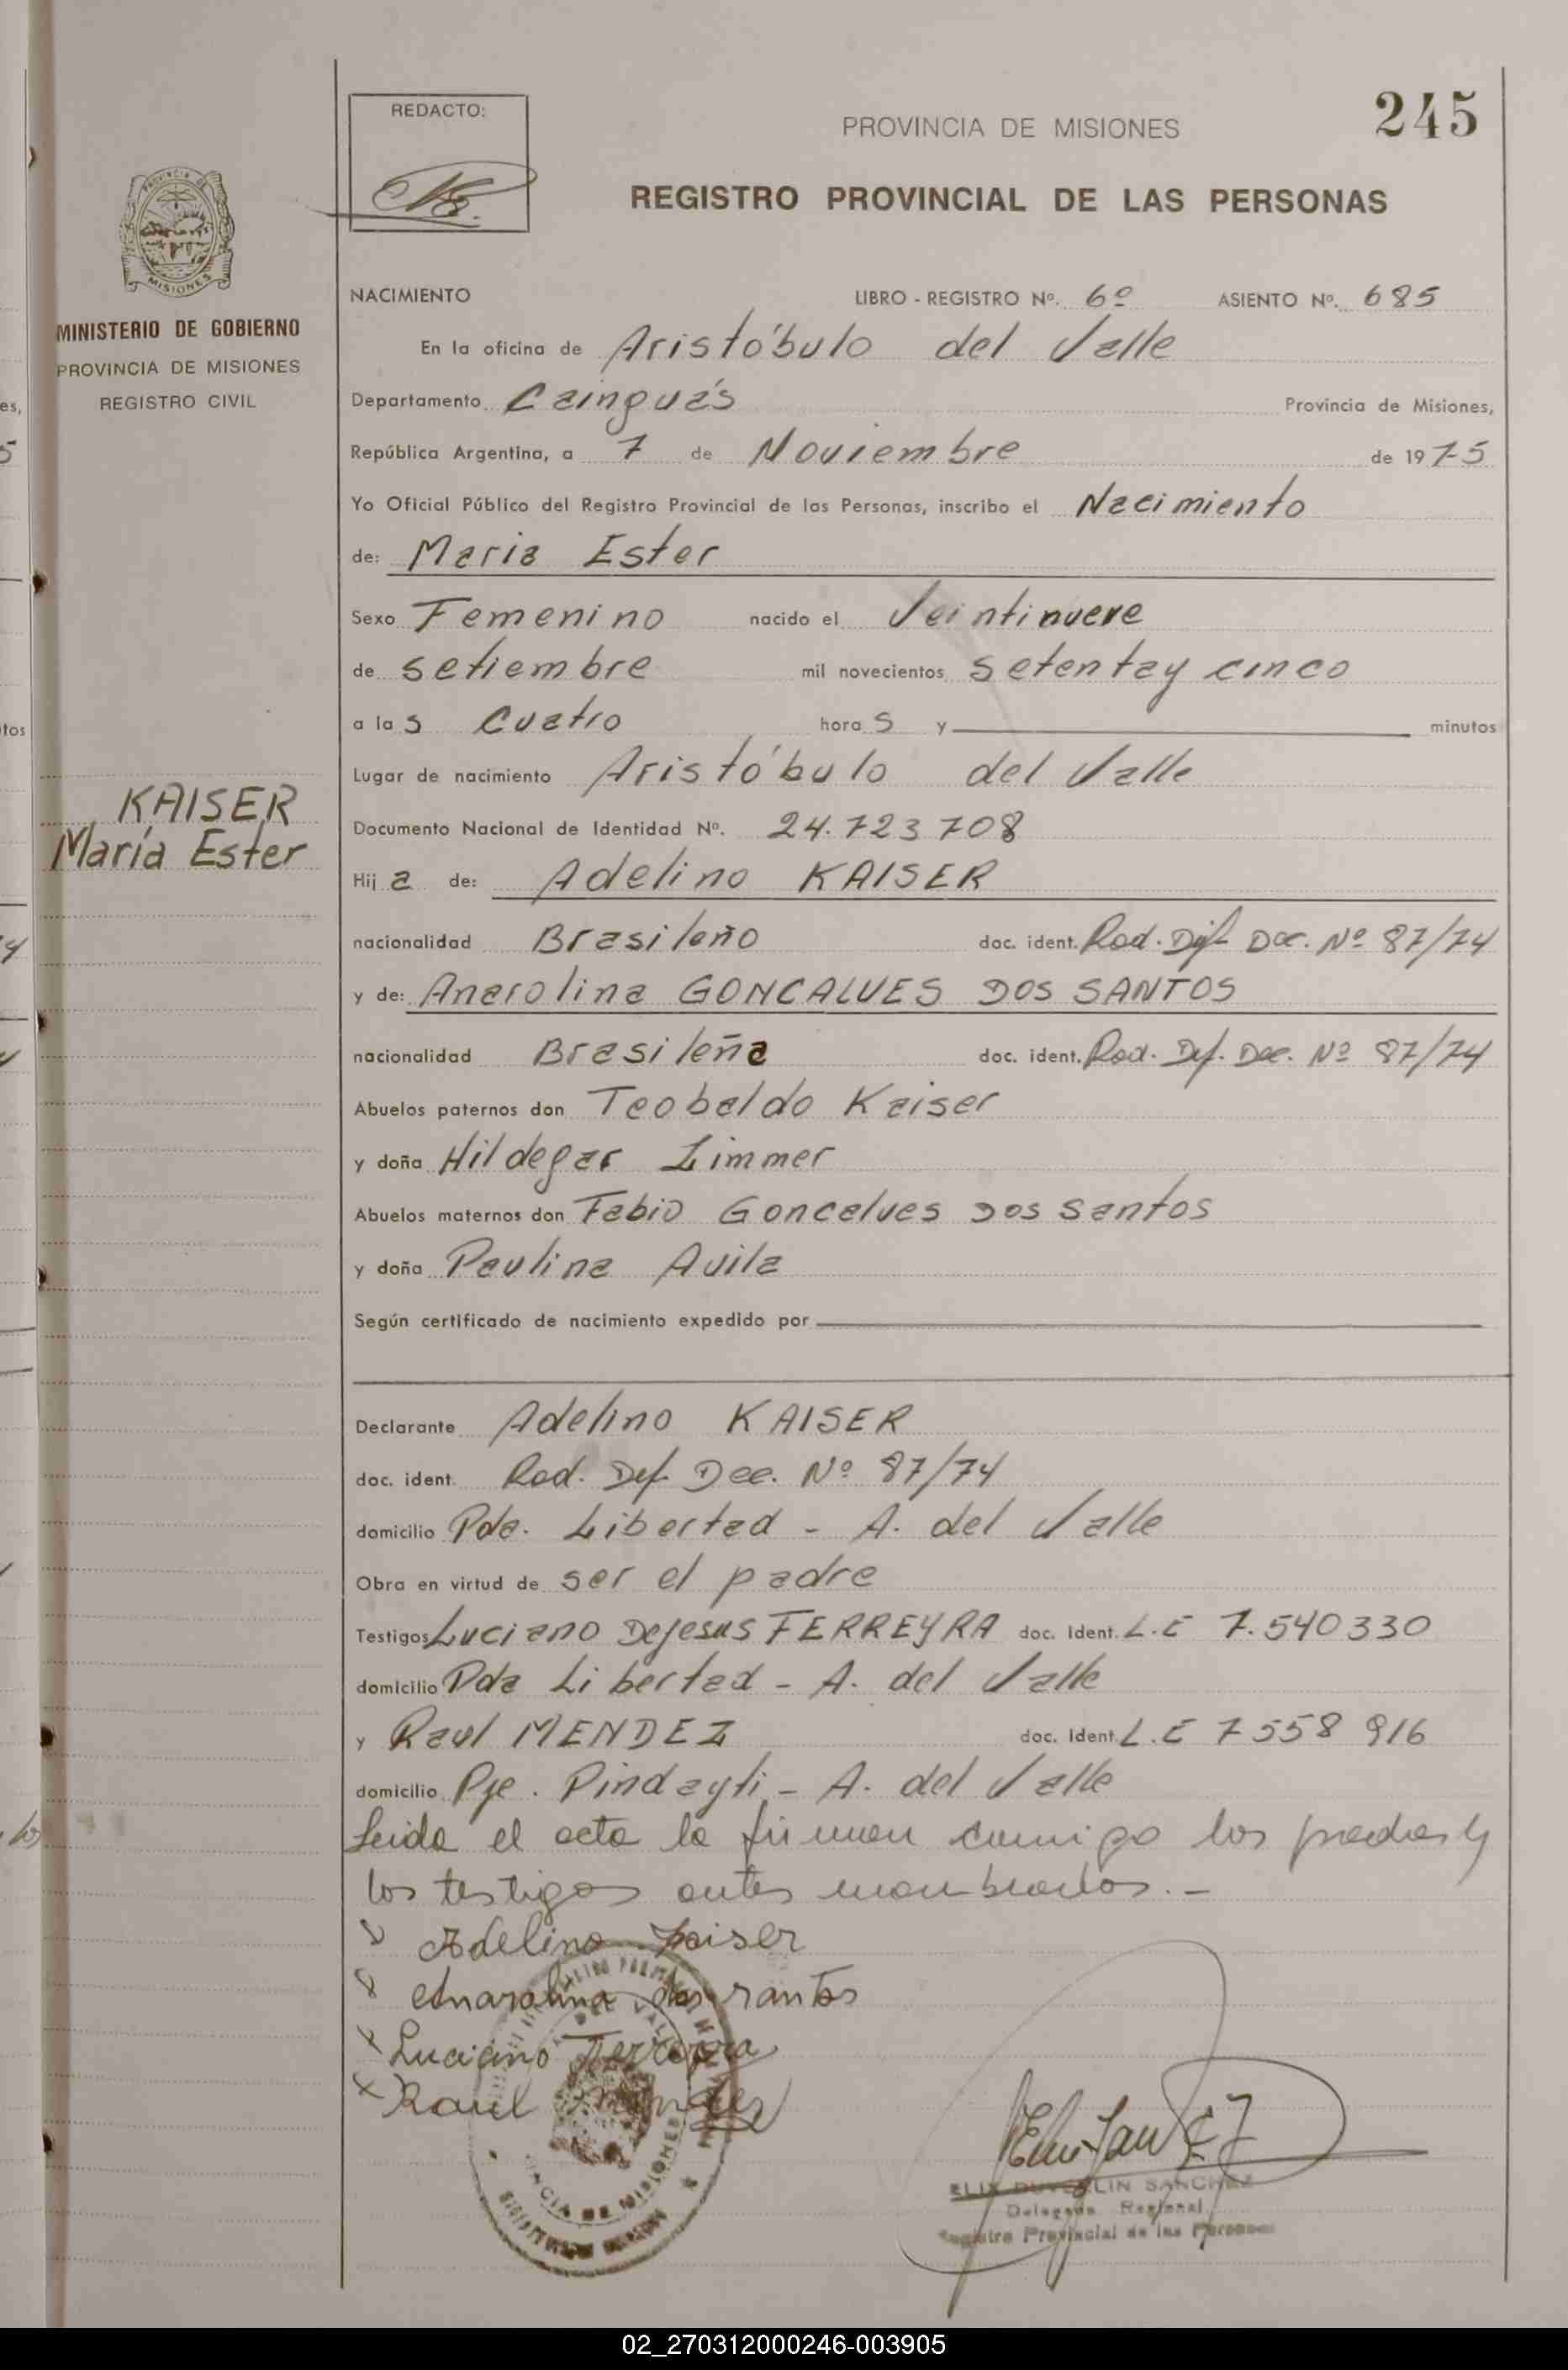 REDACTO:
PROVINCIA DE MISIONES
245
REGISTRO PROVINCIAL DE LAS PERSONAS
PROVINCIA DE
MISIONES
MINISTERIO DE GOBIERNO
PROVINCIA DE MISIONES
REGISTRO CIVIL
NACIMIENTO LIBRO - REGISTRO Nº. 6º ASIENTO Nº. 685
En la oficina de Aristóbulo del Valle
Departamento Cainguás Provincia de Misiones,
República Argentina, a 7 de Noviembre de 1975
Yo Oficial Público del Registro Provincial de las Personas, inscribo el Nacimiento
de: Maria Ester
Sexo Femenino nacido el Veintinueve
de setiembre mil novecientos setenta y cinco
a las cuatro horas y minutos
Lugar de nacimiento Aristóbulo del Valle
KAISER
María Ester
Documento Nacional de Identidad Nº. 24.723708
Hija de: Adelino KAISER
nacionalidad Brasileño doc. ident. Rad. Def. Dec. Nº 87/74
y de: Anarolina GONCALVES DOS SANTOS
nacionalidad Brasileña doc. ident. Rad. Def. Dec. Nº 87/74
Abuelos paternos don Teobaldo Kaiser
y doña Hildegar Zimmer
Abuelos maternos don Fabio Goncalves Dos Santos
y doña Paulina Avila
Según certificado de nacimiento expedido por
Declarante Adelino KAISER
doc. ident. Rad. Def. Dec. Nº 87/74
domicilio Pda. Libertad - A. del Valle
Obra en virtud de ser el padre
Testigos Luciano Dejesus FERREYRA doc. Ident. L.E 7.540330
domicilio Pda Libertad - A. del Valle
y Raul MENDEZ doc. Ident. L.E 7558916
domicilio Pje. Pindayti - A. del Valle
Leida el acta la firman conmigo los padres y
los testigos antes nombrados.-
Adelino Kaiser
Anarolina dos santos
Luciano Ferreyra
Raul Mendez
PROVINCIA DE MISIONES
ELIX DUVERLIN SANCHEZ
Delegado Regional
Registro Provincial de las Personas
02_270312000246-003905